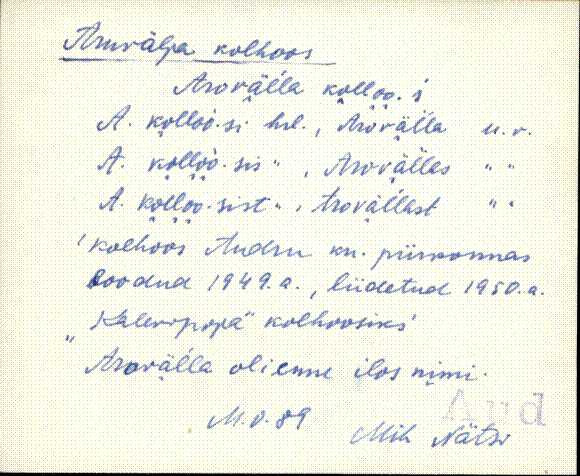 Aruvälja kolhoos
Arovälla kolloo·s
A. kolloo·si hrl., Arovälla u.r.
A. kolloo·sis " , Arovällas " "
A. kolloo·sist " , Arovällast " "
'kolhoos Audru kn. piirkonnas
loodud 1949.a., liidetud 1950.a.
"Kalevipoja" kolhoosiks'
"Arovälla oli enne ilos nimi.
M.V. 89
Mih Nätsi
Aud